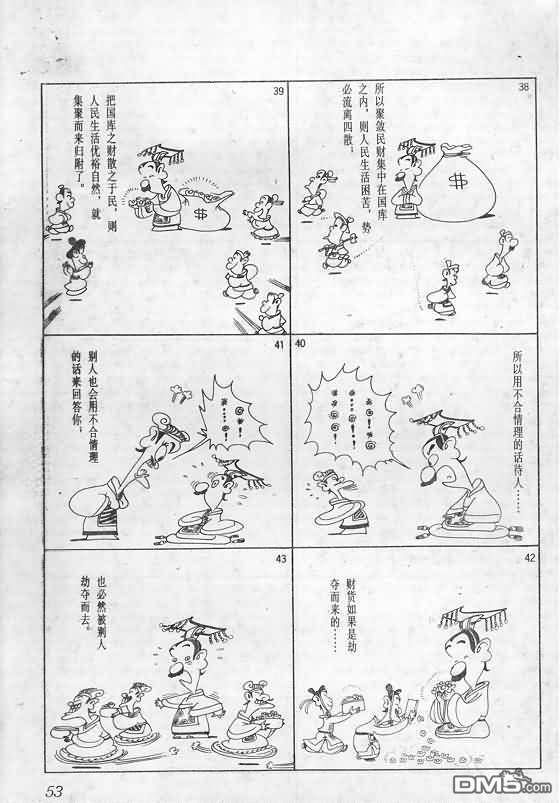 38
所以聚敛民财集中在国库
之内，则人民生活困苦，势
必流离四散；
$
39
把国库之财散之于民，则
人民生活优裕自然，就
集聚而来归附了。
$
40
所以用不合情理的话待人……
41
别人也会用不合情理
的话来回答你；
42
财货如果是劫
夺而来的……
43
也必然被别人
劫夺而去。
53
DM5.com